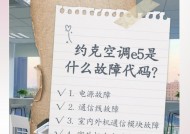 约克空调e5是
什么故障代码？
✓ 1. 电源故障
✓ 2. 通信线故障
✓ 3. 室内外机通信模块故障